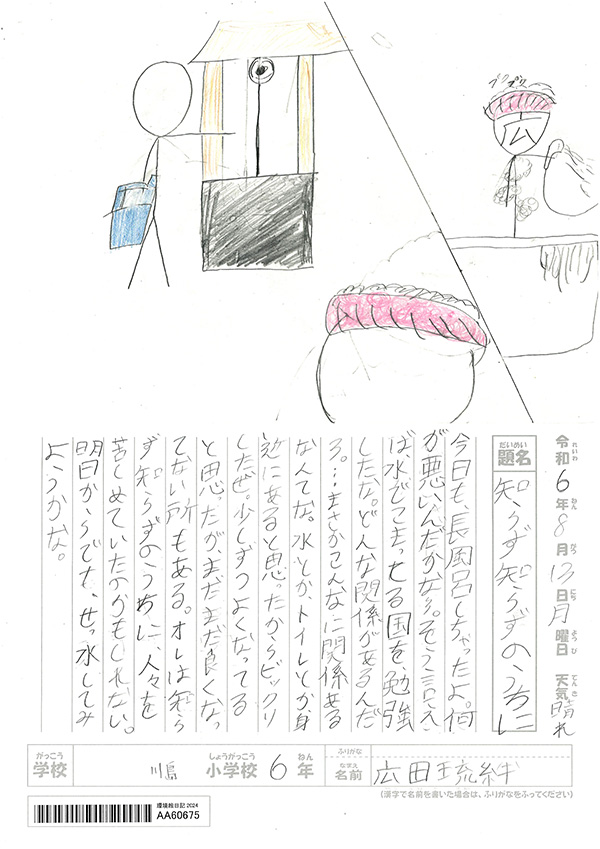 プクプク
広
令和6年8月13日月曜日 天気晴れ
れいわ ねん がつ にち ようび てんき
だいめい
題名 知らず知らずのうちに
今日も、長風呂しちゃったよ。何
が悪いんだかなぁ。そう言え
ば、水でこまってる国を、勉強
したな。どんな関係があるんだ
ろ。…まさかこんなに関係ある
なんてな。水とか、トイレとか、身
近にあると思ったからビックリ
したぜ。少しずつよくなってる
と思ったが、まだまだ良くなっ
てない所もある。オレは知ら
ず知らずのうちに、人々を
苦しめていたのかもしれない。
明日からでも、せっ水してみ
ようかな。
がっこう しょうがっこう ねん ふりがな
学校 川島 小学校 6年 なまえ 名前 広田琉絆
(漢字で名前を書いた場合は、ふりがなをふってください)
環境絵日記 2024
AA60675